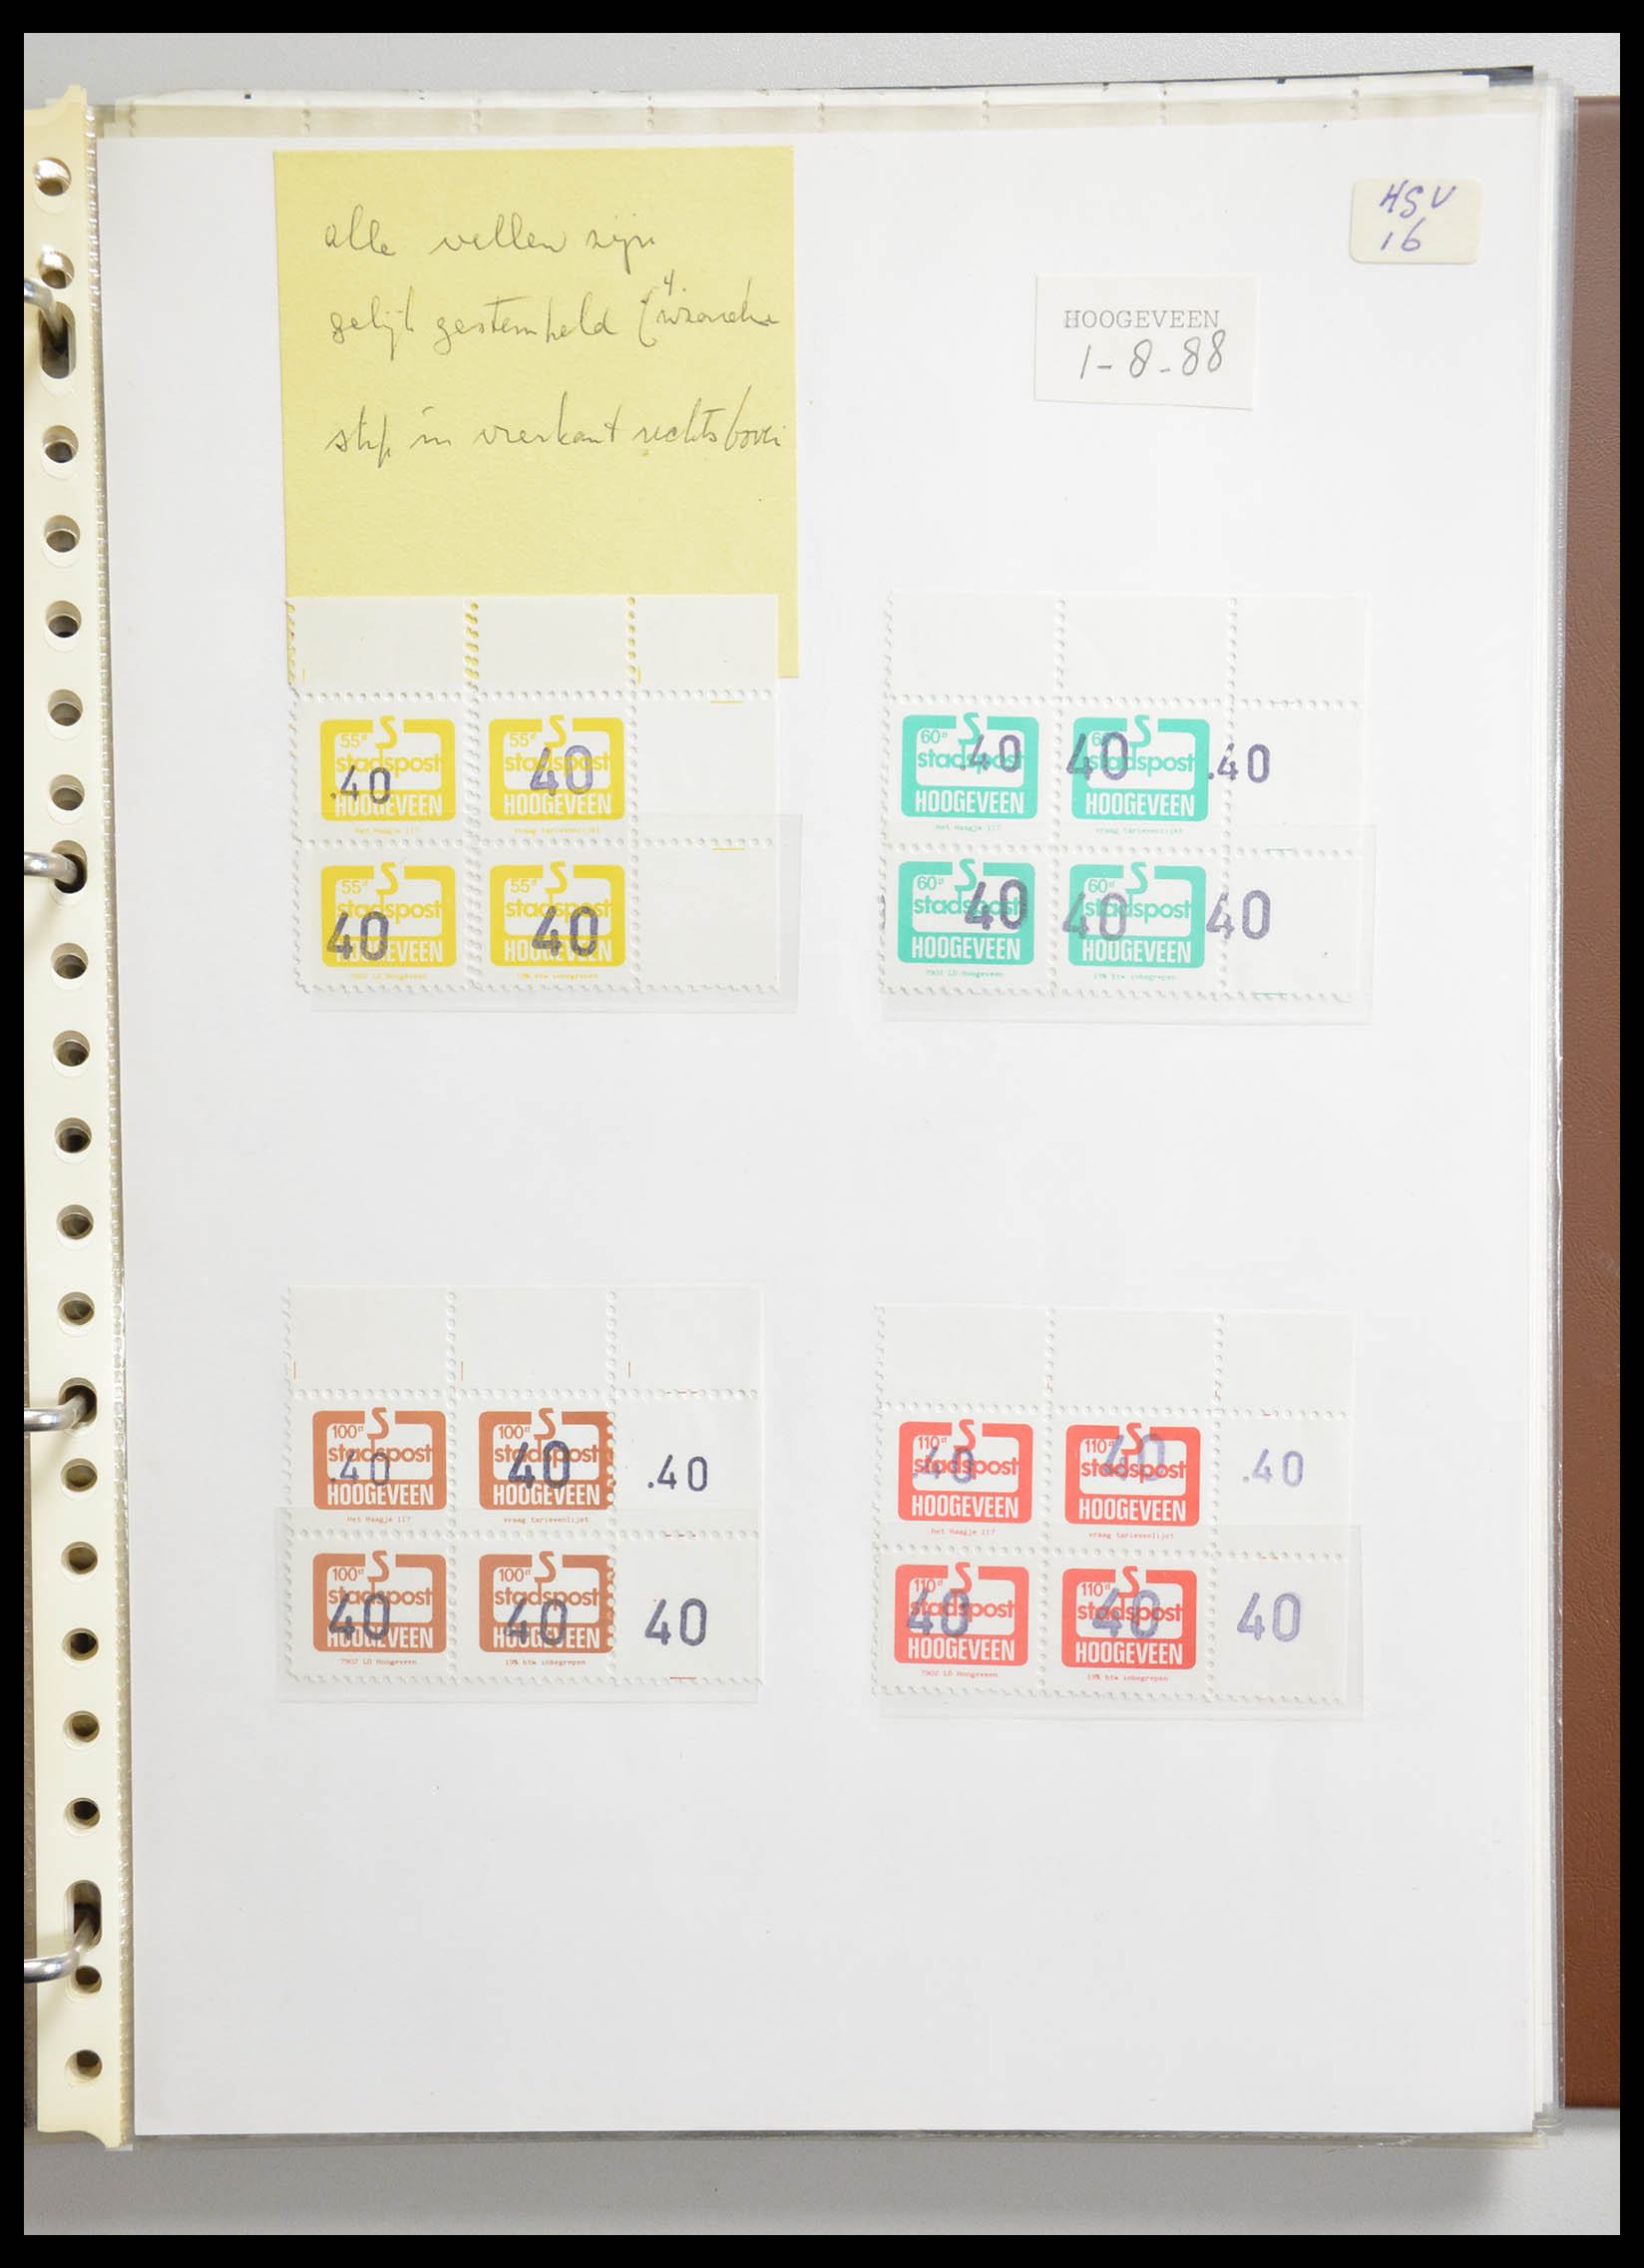 HSV
16
alle vellen zijn
gelijk gestempeld (4.
stip in vierkant rechtsboven
HOOGEVEEN
1-8-88
55ct 55ct
stadspost stadspost
.40 40
HOOGEVEEN HOOGEVEEN
het Haagje 117 vraag tarievenlijst
55ct 55ct
stadspost stadspost
40 40
HOOGEVEEN HOOGEVEEN
7902 LD Hoogeveen 19% btw inbegrepen
60ct 60ct
stadspost stadspost
.40 40 .40
HOOGEVEEN HOOGEVEEN
het Haagje 117 vraag tarievenlijst
60ct 60ct
stadspost stadspost
40 40 40
HOOGEVEEN HOOGEVEEN
7902 LD Hoogeveen 19% btw inbegrepen
100ct 100ct
stadspost stadspost
.40 40 .40
HOOGEVEEN HOOGEVEEN
het Haagje 117 vraag tarievenlijst
100ct 100ct
stadspost stadspost
40 40 40
HOOGEVEEN HOOGEVEEN
7902 LD Hoogeveen 19% btw inbegrepen
110ct 110ct
stadspost stadspost
.40 40 .40
HOOGEVEEN HOOGEVEEN
het Haagje 117 vraag tarievenlijst
110ct 110ct
stadspost stadspost
40 40 40
HOOGEVEEN HOOGEVEEN
7902 LD Hoogeveen 19% btw inbegrepen